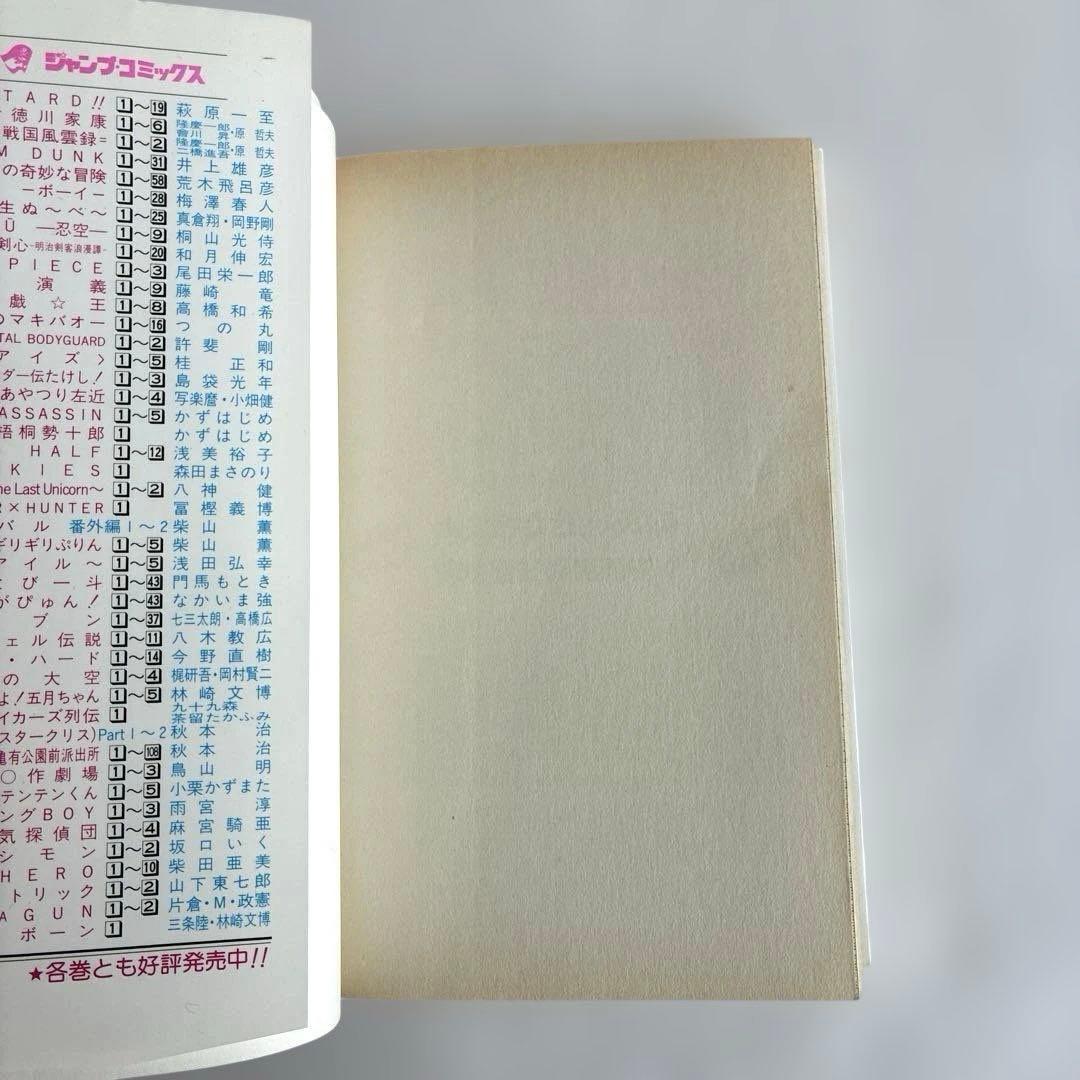 ジャンプ・コミックス
TARD!! 1〜19 萩原一至
徳川家康 1〜6 隆慶一郎・會川昇・原哲夫
戦国風雲録= 1〜2 隆慶一郎・二橋進吾・原哲夫
M DUNK 1〜31 井上雄彦
の奇妙な冒険 1〜58 荒木飛呂彦
－ボーイ－ 1〜28 梅澤春人
生ぬ〜べ〜 1〜25 真倉翔・岡野剛
Ū ―忍空― 1〜9 桐山光侍
剣心－明治剣客浪漫譚－ 1〜20 和月伸宏
PIECE 1〜3 尾田栄一郎
演義 1〜9 藤崎竜
戯☆王 1〜8 高橋和希
のマキバオー 1〜16 つの丸
TAL BODYGUARD 1〜2 許斐剛
アイズ〉 1〜5 桂正和
ダー伝たけし! 1〜3 島袋光年
あやつり左近 1〜4 写楽麿・小畑健
ASSASSIN 1〜5 かずはじめ
梧桐勢十郎 1 かずはじめ
HALF 1〜12 浅美裕子
KIES 1 森田まさのり
he Last Unicorn〜 1〜2 八神健
R×HUNTER 1 冨樫義博
バル 番外編1〜2 柴山薫
ギリギリぷりん 1〜5 柴山薫
アイル〜 1〜5 浅田弘幸
とび一斗 1〜43 門馬もとき
がぴゅん! 1〜43 なかいま強
ブン 1〜37 七三太朗・高橋広
ェル伝説 1〜11 八木教広
・ハード 1〜14 今野直樹
の大空 1〜4 梶研吾・岡村賢二
よ!五月ちゃん 1〜5 林崎文博
イカーズ列伝 1 九十九森・茶留たかふみ
スタークリス)Part1〜2 秋本治
亀有公園前派出所 1〜108 秋本治
○作劇場 1〜3 鳥山明
テンテンくん 1〜5 小栗かずまた
ングBOY 1〜3 雨宮淳
気探偵団 1〜4 麻宮騎亜
シモン 1〜2 坂口いく
HERO 1〜10 柴田亜美
トリック 1〜2 山下東七郎
AGUN 1〜2 片倉・M・政憲
ボーン 1 三条陸・林崎文博
★各巻とも好評発売中!!